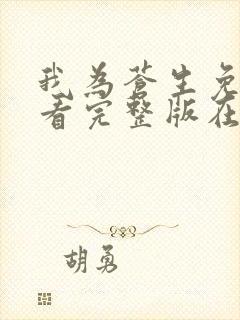 我为苍生免
看完整版在
胡勇